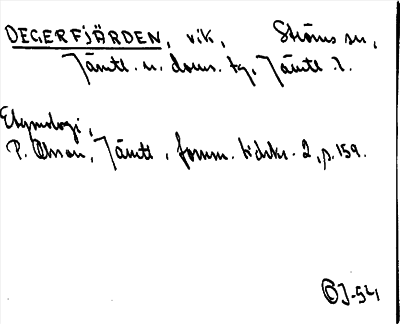 DEGERFJÄRDEN, vik, Ströms sn,
Jämtl. n. doms. tg, Jämtl. l.
Etymologi,
P. Olsson, Jämtl. fornm. tidskr. 2, p. 159.
OJ-54